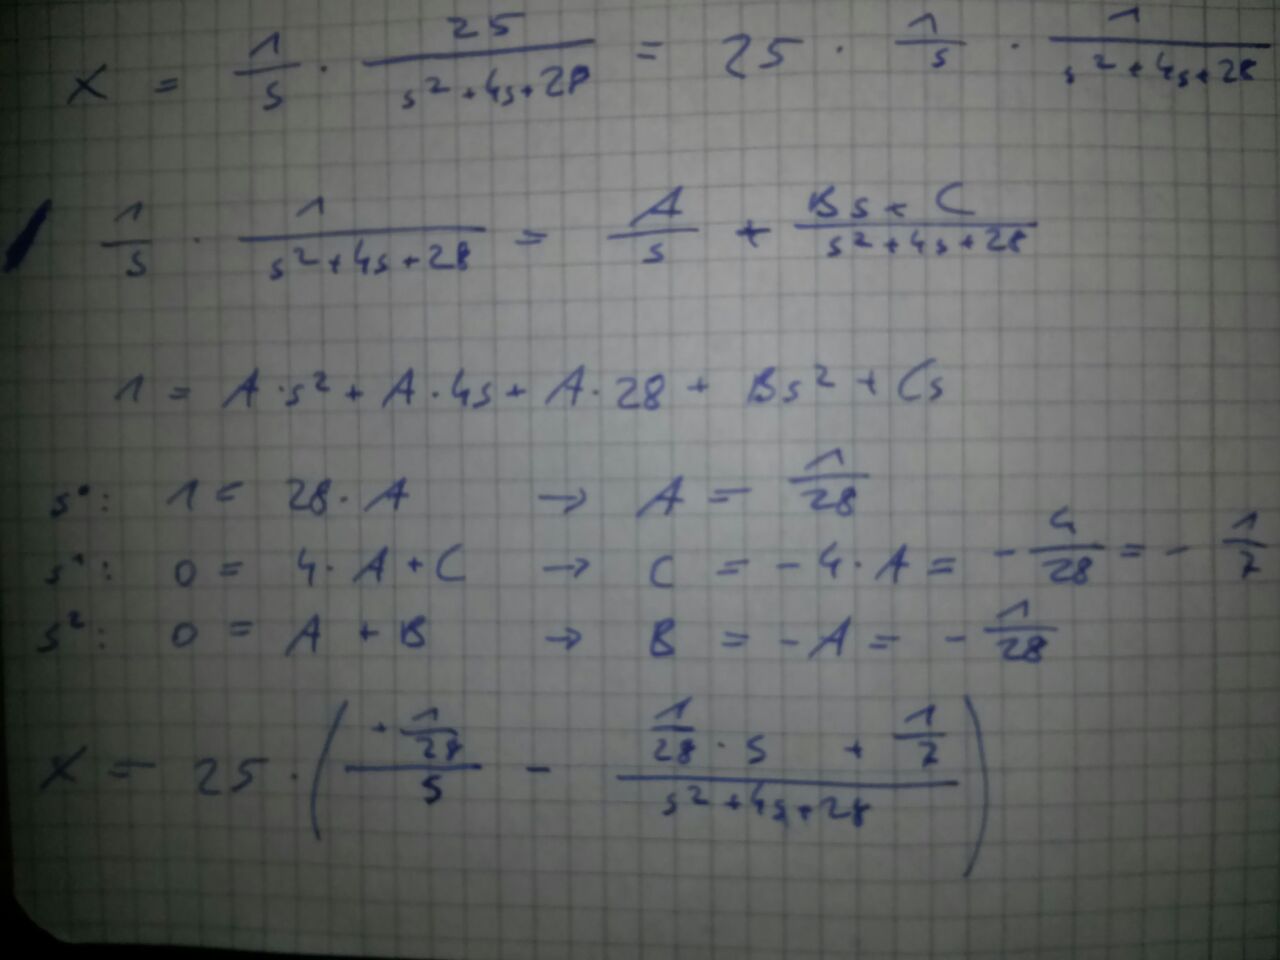 X = 1/s · 25/(s²+4s+28) = 25 · 1/s · 1/(s²+4s+28)
1/s · 1/(s²+4s+28) = A/s + (Bs+C)/(s²+4s+28)
1 = A·s² + A·4s + A·28 + Bs² + Cs
s⁰: 1 = 28·A → A = 1/28
s¹: 0 = 4·A+C → C = -4·A = -4/28 = -1/7
s²: 0 = A + B → B = -A = -1/28
X = 25 · ( (+1/28)/s - (1/28·s + 1/7)/(s²+4s+28) )